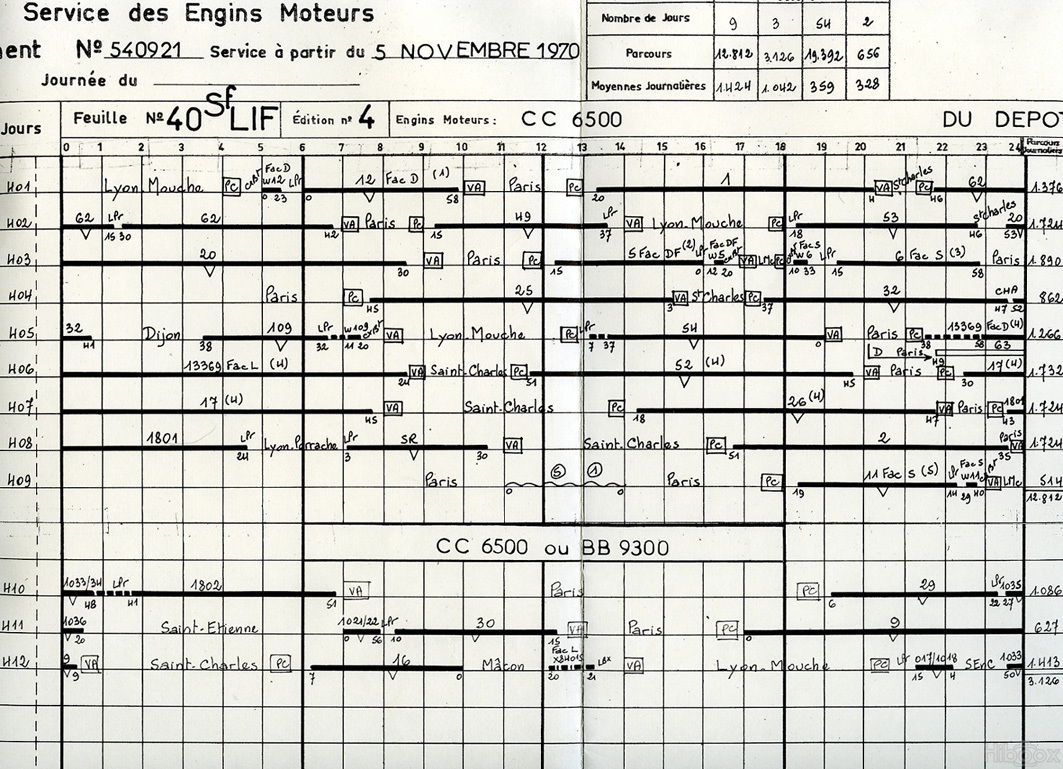 Service des Engins Moteurs
ent Nº 540921 Service à partir du 5 NOVEMBRE 1970
Journée du
Nombre de Jours 9 3 54 2
Parcours 12.812 3.126 19.392 656
Moyennes Journalières 1.424 1.042 359 328
Jours Feuille Nº 40 Sf LIF Édition nº 4 Engins Moteurs: CC 6500 DU DEPOT
0 1 2 3 4 5 6 7 8 9 10 11 12 13 14 15 16 17 18 19 20 21 22 23 24 Parcours Journaliers
401 Lyon-Mouche PC Fac D W12 LPr 12 Fac D (1) VA Paris PC 1 VA St Charles PC 62 1.376
0 23 0 58 20 4 46
402 62 LPr 62 VA Paris PC 49 LPr VA Lyon-Mouche PC LPr 53 St Charles 20 1.724
15 30 42 15 37 18 46 53
403 20 VA Paris PC 5 Fac DF (2) LPr Fac DF W5 VA LMc PC Fac S W6 LPr 6 Fac S (3) Paris 1.890
30 15 0 12 20 10 33 15 58
404 Paris PC 25 VA St Charles PC 32 CHA 862
45 3 37 47 52
405 32 Dijon 109 LPr W109 VA Lyon-Mouche PC LPr 54 VA Paris PC 13369 Fac D (4) 1.266
41 38 32 11 20 7 37 0 38 58 63
D Paris 49
406 13369 Fac L (4) VA Saint-Charles PC 52 (4) VA Paris PC 17 (4) 1.732
24 51 45 30
407 17 (4) VA Saint-Charles PC 26 (4) VA Paris PC 1801 1.724
45 18 47 43
408 1801 LPr Lyon-Perrache LPr SR VA Saint-Charles PC 2 Paris VA 1.724
24 3 30 51 35
409 Paris 5 1 Paris PC 11 Fac S (5) LPr Fac S W11 VA LMc 514
0 0 19 14 29 40 12.812
CC 6500 ou BB 9300
410 1033/34 LPr 1802 VA Paris PC 29 LPr 1035 1.086
48 41 51 6 22 27
411 1036 Saint-Etienne 1021/22 LPr 30 VA Paris PC 9 627
20 0 56 10 15 0
412 9 VA Saint-Charles PC 16 Mâcon Fac L VA Lyon-Mouche PC LPr 1017/1018 SEnC 1033 1.413
9 7 0 20 21 15 4 50
3.126
hiboox